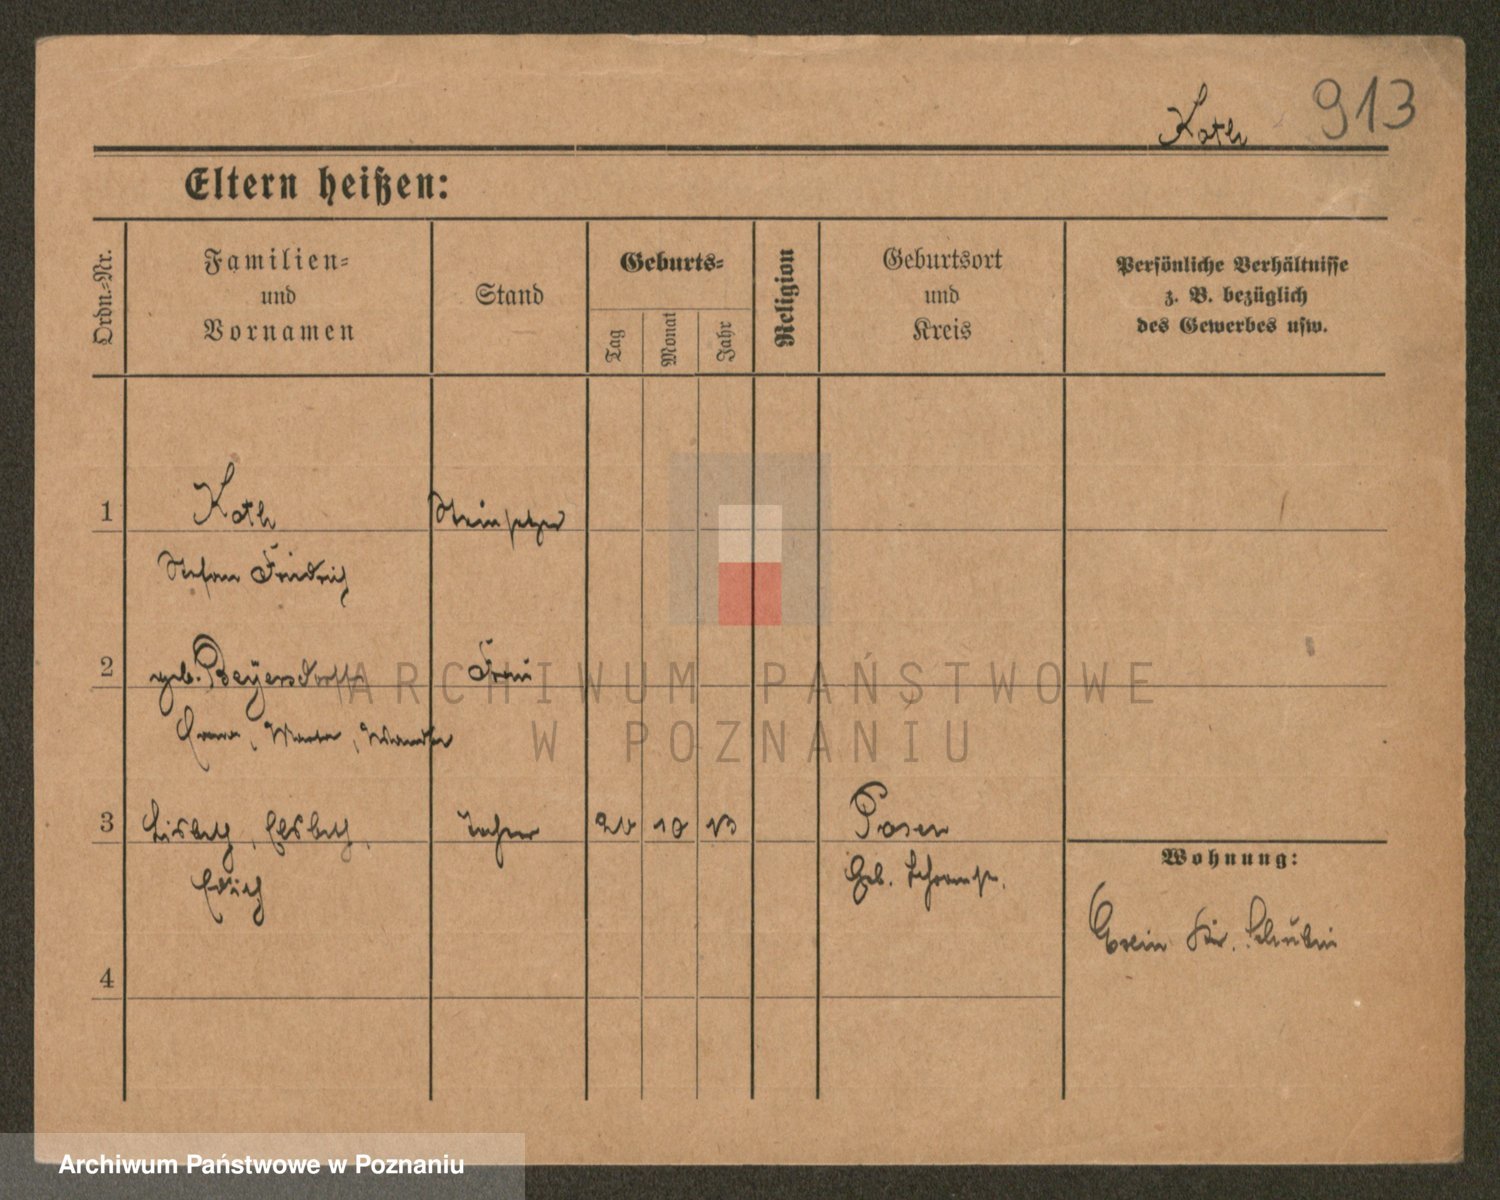 Kath 913
Eltern heißen:
Ordn.-Nr.
Familien-
und
Vornamen
Stand
Geburts-
Tag
Monat
Jahr
Religion
Geburtsort
und
Kreis
Persönliche Verhältnisse
z. B. bezüglich
des Gewerbes usw.
1 Kath Steinsetzer
Stefan Friedrich
2 geb. Beyersdorff Frau
3 Lisbeth, Elsbeth, Tochter 10 13 Posen
Edith Geb.
Wohnung:
Exin Kr. Schubin
4
ARCHIWUM PAŃSTWOWE
W POZNANIU
Archiwum Państwowe w Poznaniu